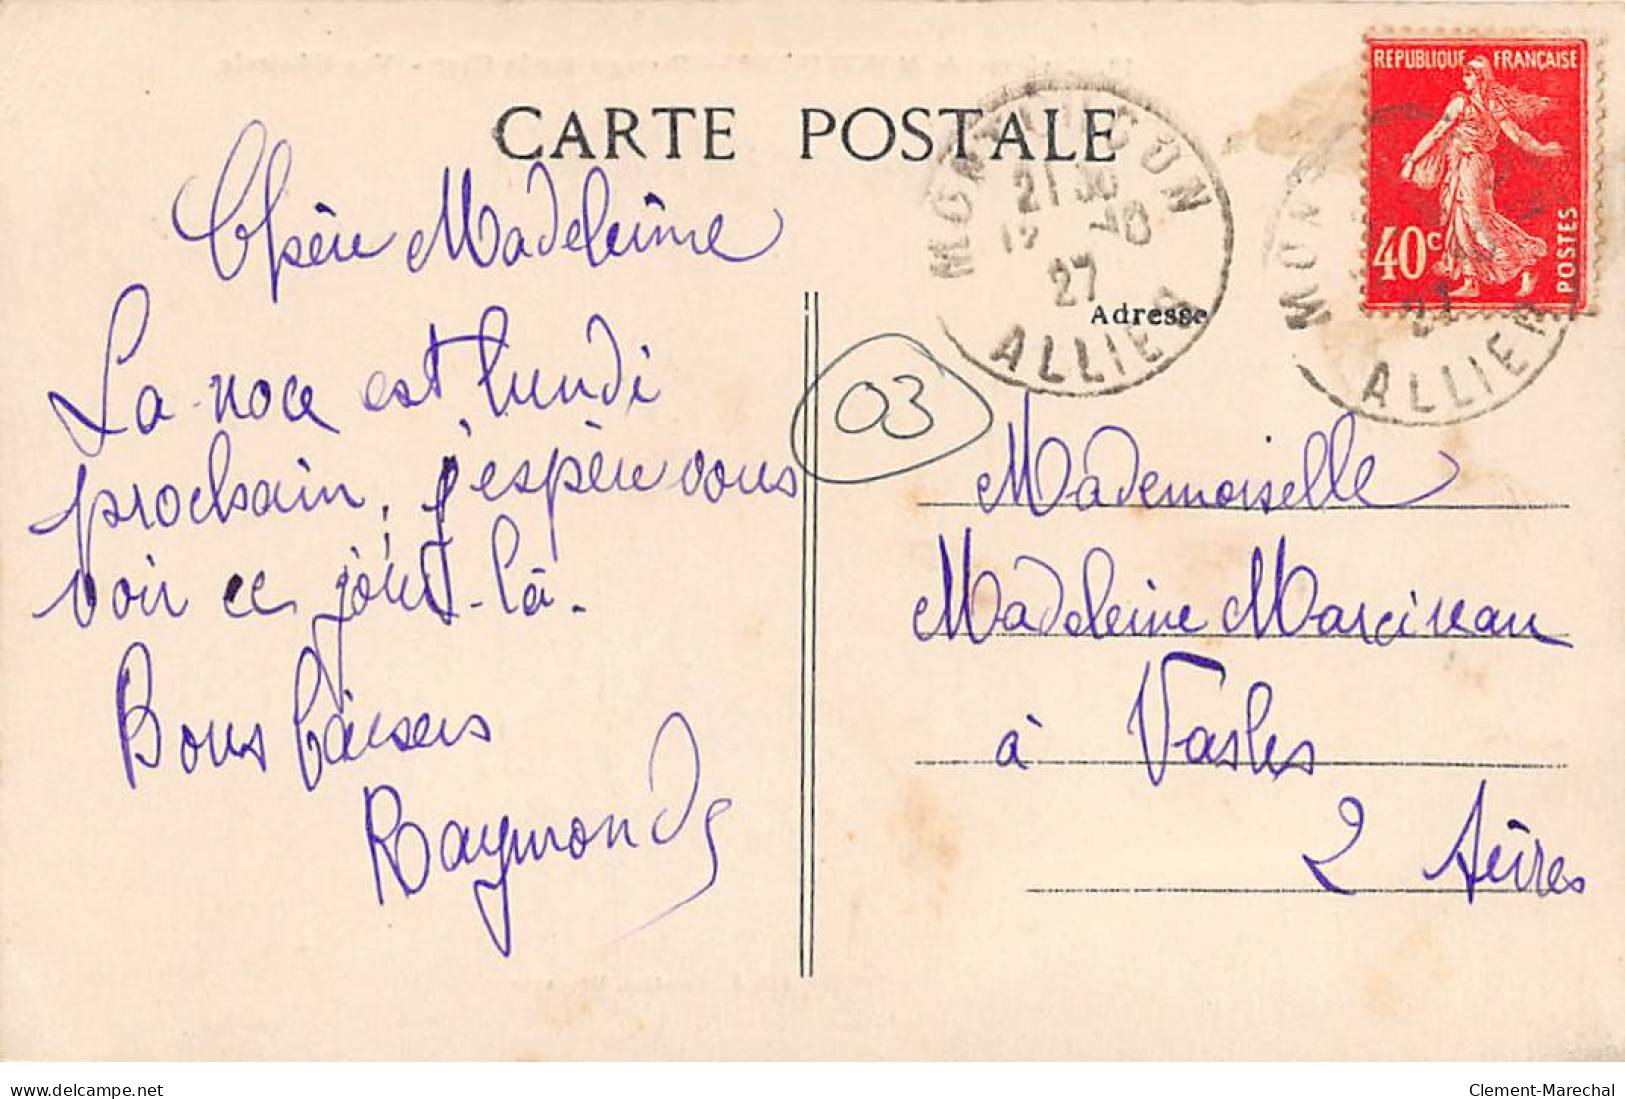 CARTE POSTALE
Chère Madeleine
La noce est lundi
prochain, j'espère vous
voir ce jour-là.
Bons baisers
Raymonde
03
MONTLUCON
21 30
12 -10
27
ALLIER
Adresse
REPUBLIQUE FRANÇAISE
40c
POSTES
ALLIER
Mademoiselle
Madeleine Marcireau
à Vasles
2 Sèvres
delcampe.net
Clement-Marechal